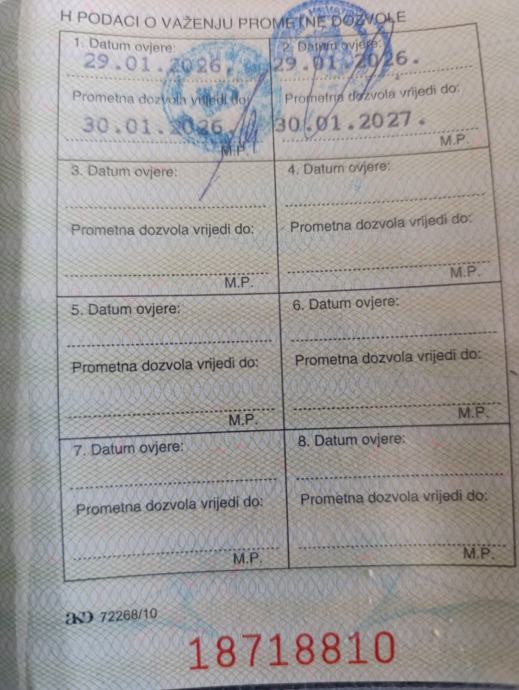 H PODACI O VAŽENJU PROMETNE DOZVOLE
1. Datum ovjere:
29.01.2026.
Prometna dozvola vrijedi do:
30.01.2026.
M.P.
2. Datum ovjere:
29.01.2026.
Prometna dozvola vrijedi do:
30.01.2027.
M.P.
3. Datum ovjere:
Prometna dozvola vrijedi do:
M.P.
4. Datum ovjere:
Prometna dozvola vrijedi do:
M.P.
5. Datum ovjere:
Prometna dozvola vrijedi do:
M.P.
6. Datum ovjere:
Prometna dozvola vrijedi do:
M.P.
7. Datum ovjere:
Prometna dozvola vrijedi do:
M.P.
8. Datum ovjere:
Prometna dozvola vrijedi do:
M.P.
AKD 72268/10
18718810